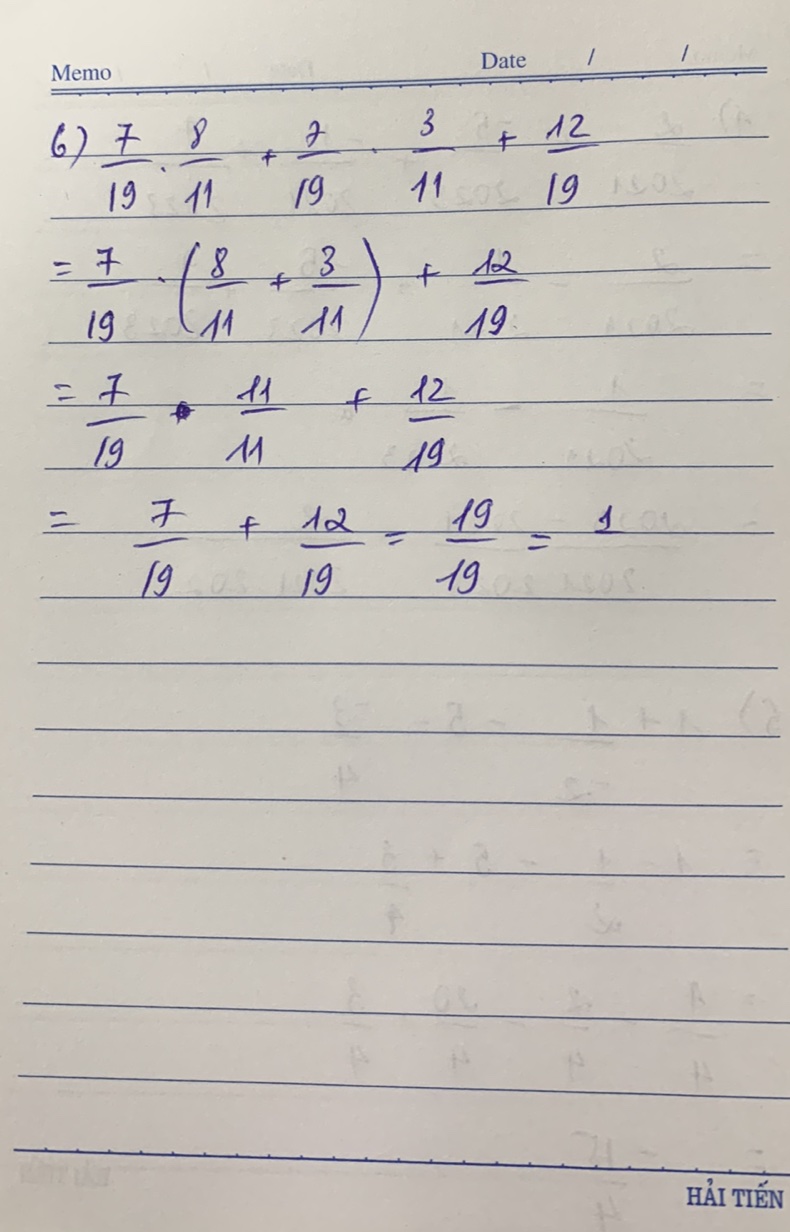 Memo Date / /
6) 7/19 . 8/11 + 7/19 . 3/11 + 12/19
= 7/19 . (8/11 + 3/11) + 12/19
= 7/19 . 11/11 + 12/19
= 7/19 + 12/19 = 19/19 = 1
HẢI TIẾN